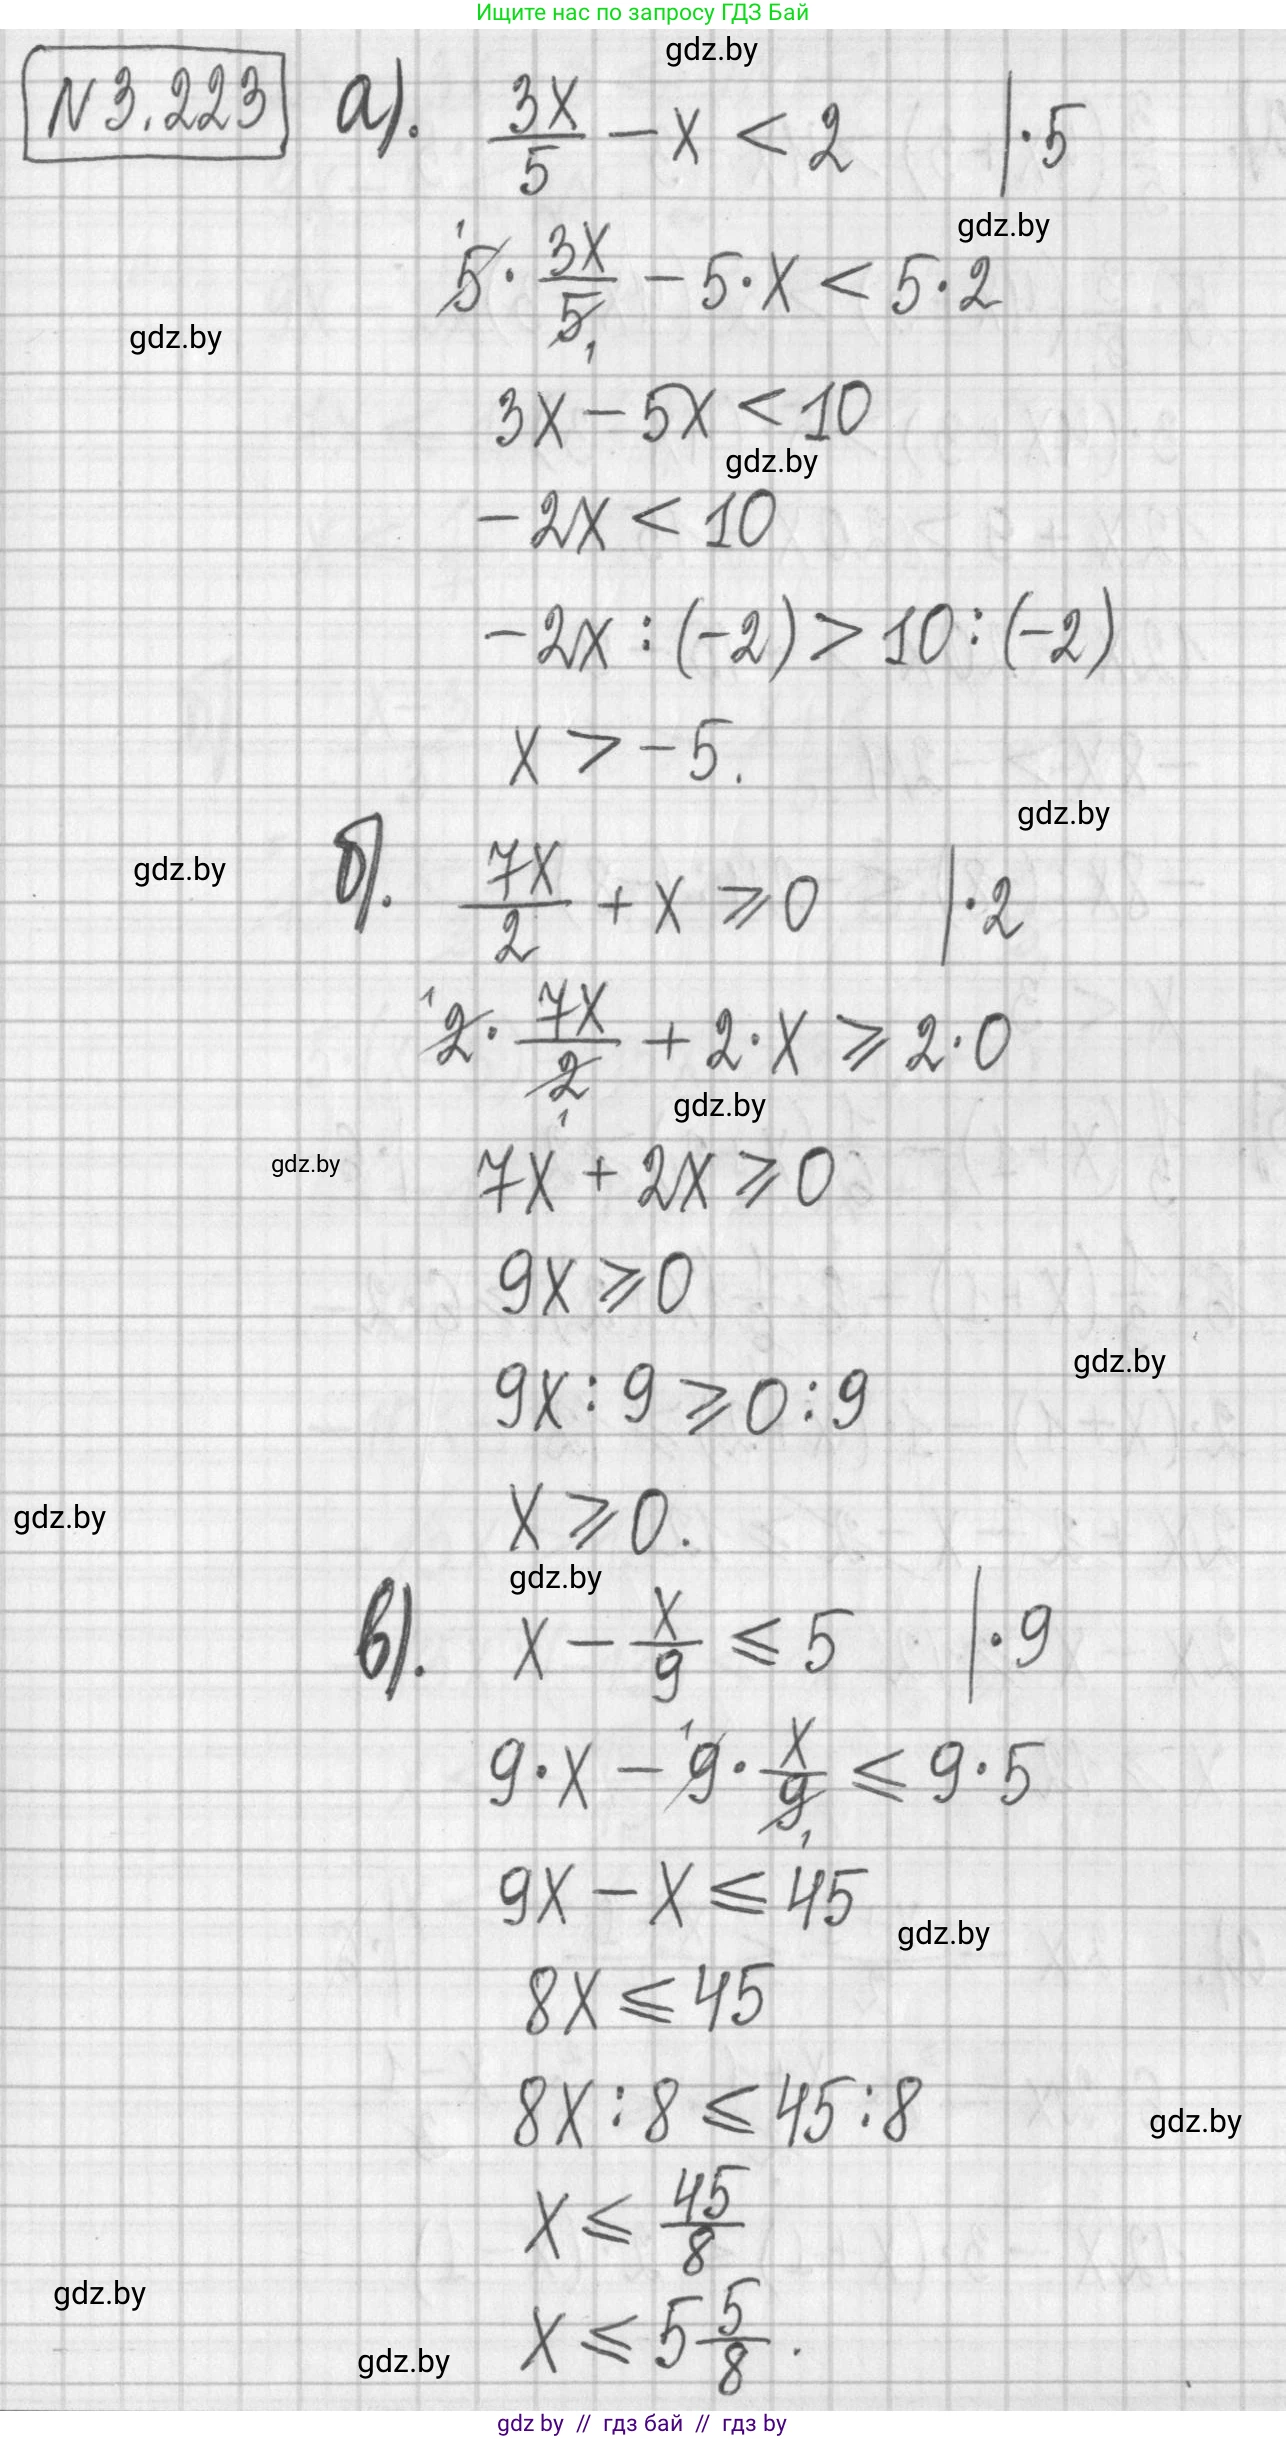 Ищите нас по запросу ГДЗ Бай
gdz.by
N 3.223 а). 3x/5 − x < 2 | · 5
gdz.by
5 · 3x/5 − 5 · x < 5 · 2
1 1
gdz.by
3x − 5x < 10
gdz.by
−2x < 10
−2x : (−2) > 10 : (−2)
x > −5.
gdz.by
gdz.by
б). 7x/2 + x ⩾ 0 | · 2
2 · 7x/2 + 2 · x ⩾ 2 · 0
1 1
gdz.by
gdz.by
7x + 2x ⩾ 0
9x ⩾ 0
gdz.by
9x : 9 ⩾ 0 : 9
gdz.by
x ⩾ 0.
gdz.by
в). x − x/9 ⩽ 5 | · 9
9 · x − 9 · x/9 ⩽ 9 · 5
1 1
9x − x ⩽ 45
gdz.by
8x ⩽ 45
8x : 8 ⩽ 45 : 8
gdz.by
x ⩽ 45/8
gdz.by
x ⩽ 5 5/8.
gdz.by
gdz by // гдз бай // гдз by